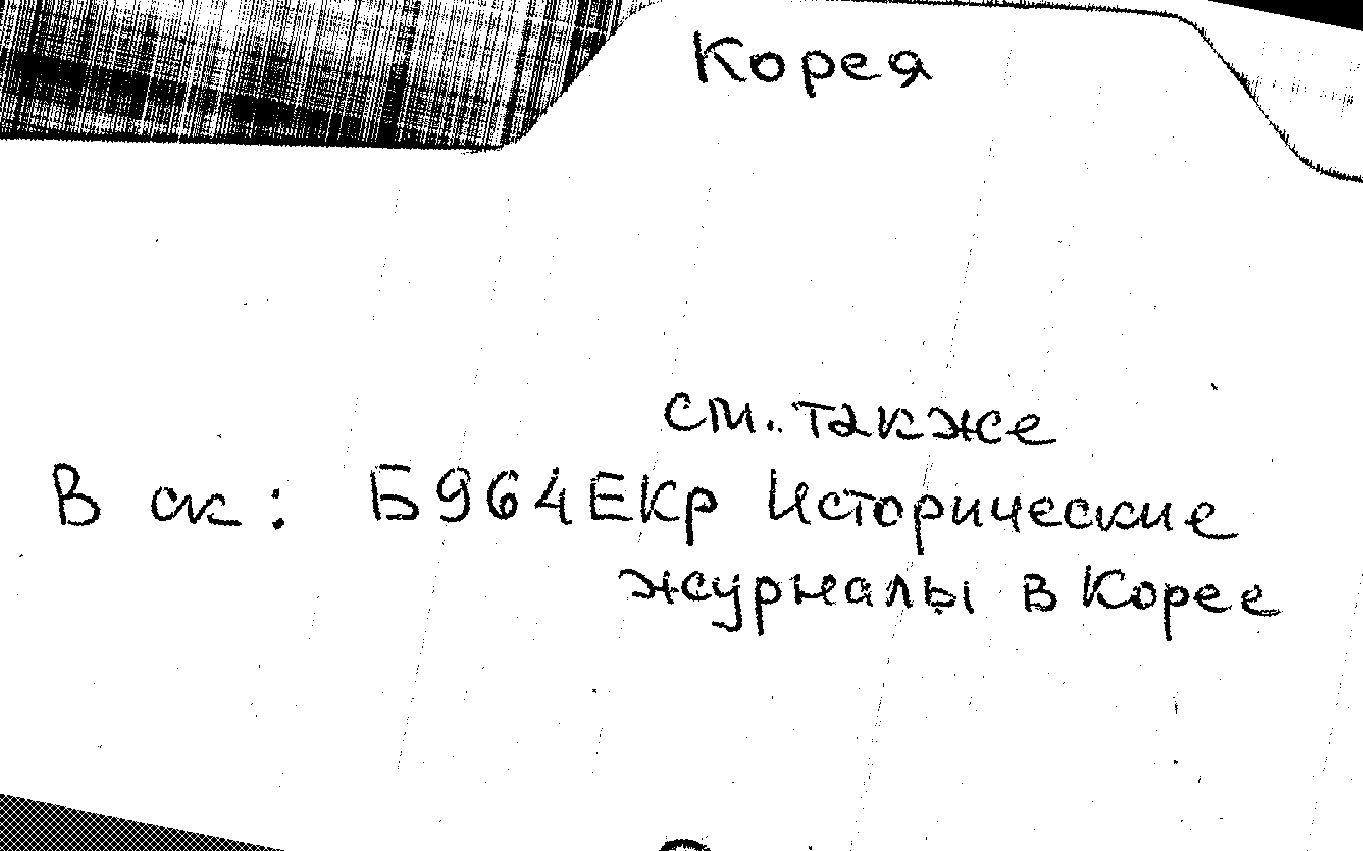 Корея
см. также
В ск: Б964ЕКр Исторические
журналы в Корее